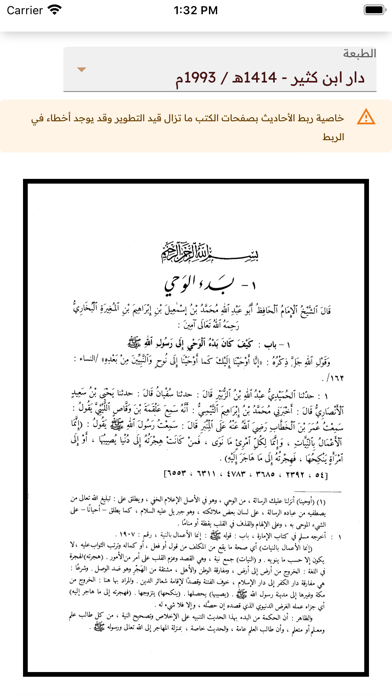 Carrier
1:32 PM
الطبعة
دار ابن كثير - 1414هـ / 1993م
خاصية ربط الأحاديث بصفحات الكتب ما تزال قيد التطوير وقد يوجد أخطاء في
الربط
بسم الله الرحمن الرحيم
١- بَدء الوَحي
قَالَ الشَّيْخُ الإِمَامُ الْحَافِظُ أَبُو عَبْدِ اللهِ مُحَمَّدُ بْنُ إِسْمٰعِيلَ بْنِ إِبْرَاهِيمَ بْنِ الْمُغِيرَةِ الْبُخَارِيُّ
رَحِمَهُ اللهُ تَعَالَى آمِينَ :
١ - باب : كَيْفَ كَانَ بَدْءُ الْوَحْيِ إِلَى رَسُولِ اللهِ ﷺ
وَقَوْلِ اللهِ جَلَّ ذِكْرُهُ : «إِنَّا أَوْحَيْنَا إِلَيْكَ كَمَا أَوْحَيْنَا إِلَى نُوحٍ وَالنَّبِيِّينَ مِنْ بَعْدِهِ» /النساء :
١٦٣/ .
١ : حدثنا الْحُمَيْدِيُّ عَبْدُ اللهِ بْنُ الزُّبَيْرِ قَالَ : حدثنا سُفْيَانُ قَالَ : حدثنا يَحْيَى بْنُ سَعِيدٍ
الْأَنْصَارِيُّ قَالَ : أَخْبَرَنِي مُحَمَّدُ بْنُ إِبْرَاهِيمَ التَّيْمِيُّ : أَنَّهُ سَمِعَ عَلْقَمَةَ بْنَ وَقَّاصٍ اللَّيْثِيَّ يَقُولُ :
سَمِعْتُ عُمَرَ بْنَ الْخَطَّابِ رَضِيَ اللهُ عَنْهُ عَلَى الْمِنْبَرِ قَالَ : سَمِعْتُ رَسُولَ اللهِ ﷺ يَقُولُ : (إِنَّمَا
الْأَعْمَالُ بِالنِّيَّاتِ ، وَإِنَّمَا لِكُلِّ امْرِئٍ مَا نَوَى ، فَمَنْ كَانَتْ هِجْرَتُهُ إِلَى دُنْيَا يُصِيبُهَا ، أَوْ إِلَى
امْرَأَةٍ يَنْكِحُهَا ، فَهِجْرَتُهُ إِلَى مَا هَاجَرَ إِلَيْهِ) .
[٥٤ ، ٢٣٩٢ ، ٣٦٨٥ ، ٤٧٨٣ ، ٦٣١١ ، ٦٥٥٣]
(١) (أوحينا) أنزلنا عليك الرسالة ، من الوحي ، وهو في الأصل الإعلام الخفي ، ويطلق على : تبليغ الله تعالى من
يصطفيه من عباده الرسالة ، على لسان بعض ملائكته ، وهو جبريل عليه السلام ، كما يطلق - أحيانًا - على
الشيء الموحى به ، وعلى الإلهام والقذف في القلب يقظة أو منامًا .
١ : أخرجه مسلم في كتاب الإمارة ، باب : قوله ﷺ إنما الأعمال بالنية ، رقم : ١٩٠٧ .
(إنما الأعمال بالنيات) أي صحة ما يقع من المكلف من قول أو فعل ، أو كماله وترتب الثواب عليه ، لا
يكون إلا حسب ما ينويه . و (النيات) جمع نية ، وهي القصد وعزم القلب على أمر من الأمور . (هجرته) الهجرة
في اللغة : الخروج من أرض إلى أرض ، ومفارقة الوطن والأهل ، مشتقة من الهَجْر وهو ضد الوصل . وشرعًا :
هي مفارقة دار الكفر إلى دار الإسلام ، خوف الفتنة وقصدًا لإقامة شعائر الدين . والمراد بها هنا : الخروج من
مكة وغيرها إلى مدينة رسول الله ﷺ . (يصيبها) يحصلها . (ينكحها) يتزوجها . (فهجرته إلى ما هاجر إليه)
أي جزاء عمله الغرض الدنيوي الذي قصده إن حصَّله ، وإلا فلا شيء له .
والظاهر : أن الحكمة من البدء بهذا الحديث التنبيه على الإخلاص وتصحيح النية ، من كل طالب علم
ومعلم أو متعلم ، وأن طالب العلم عامة ، والحديث خاصة ، بمنزلة المهاجر إلى الله تعالى ورسوله ﷺ .